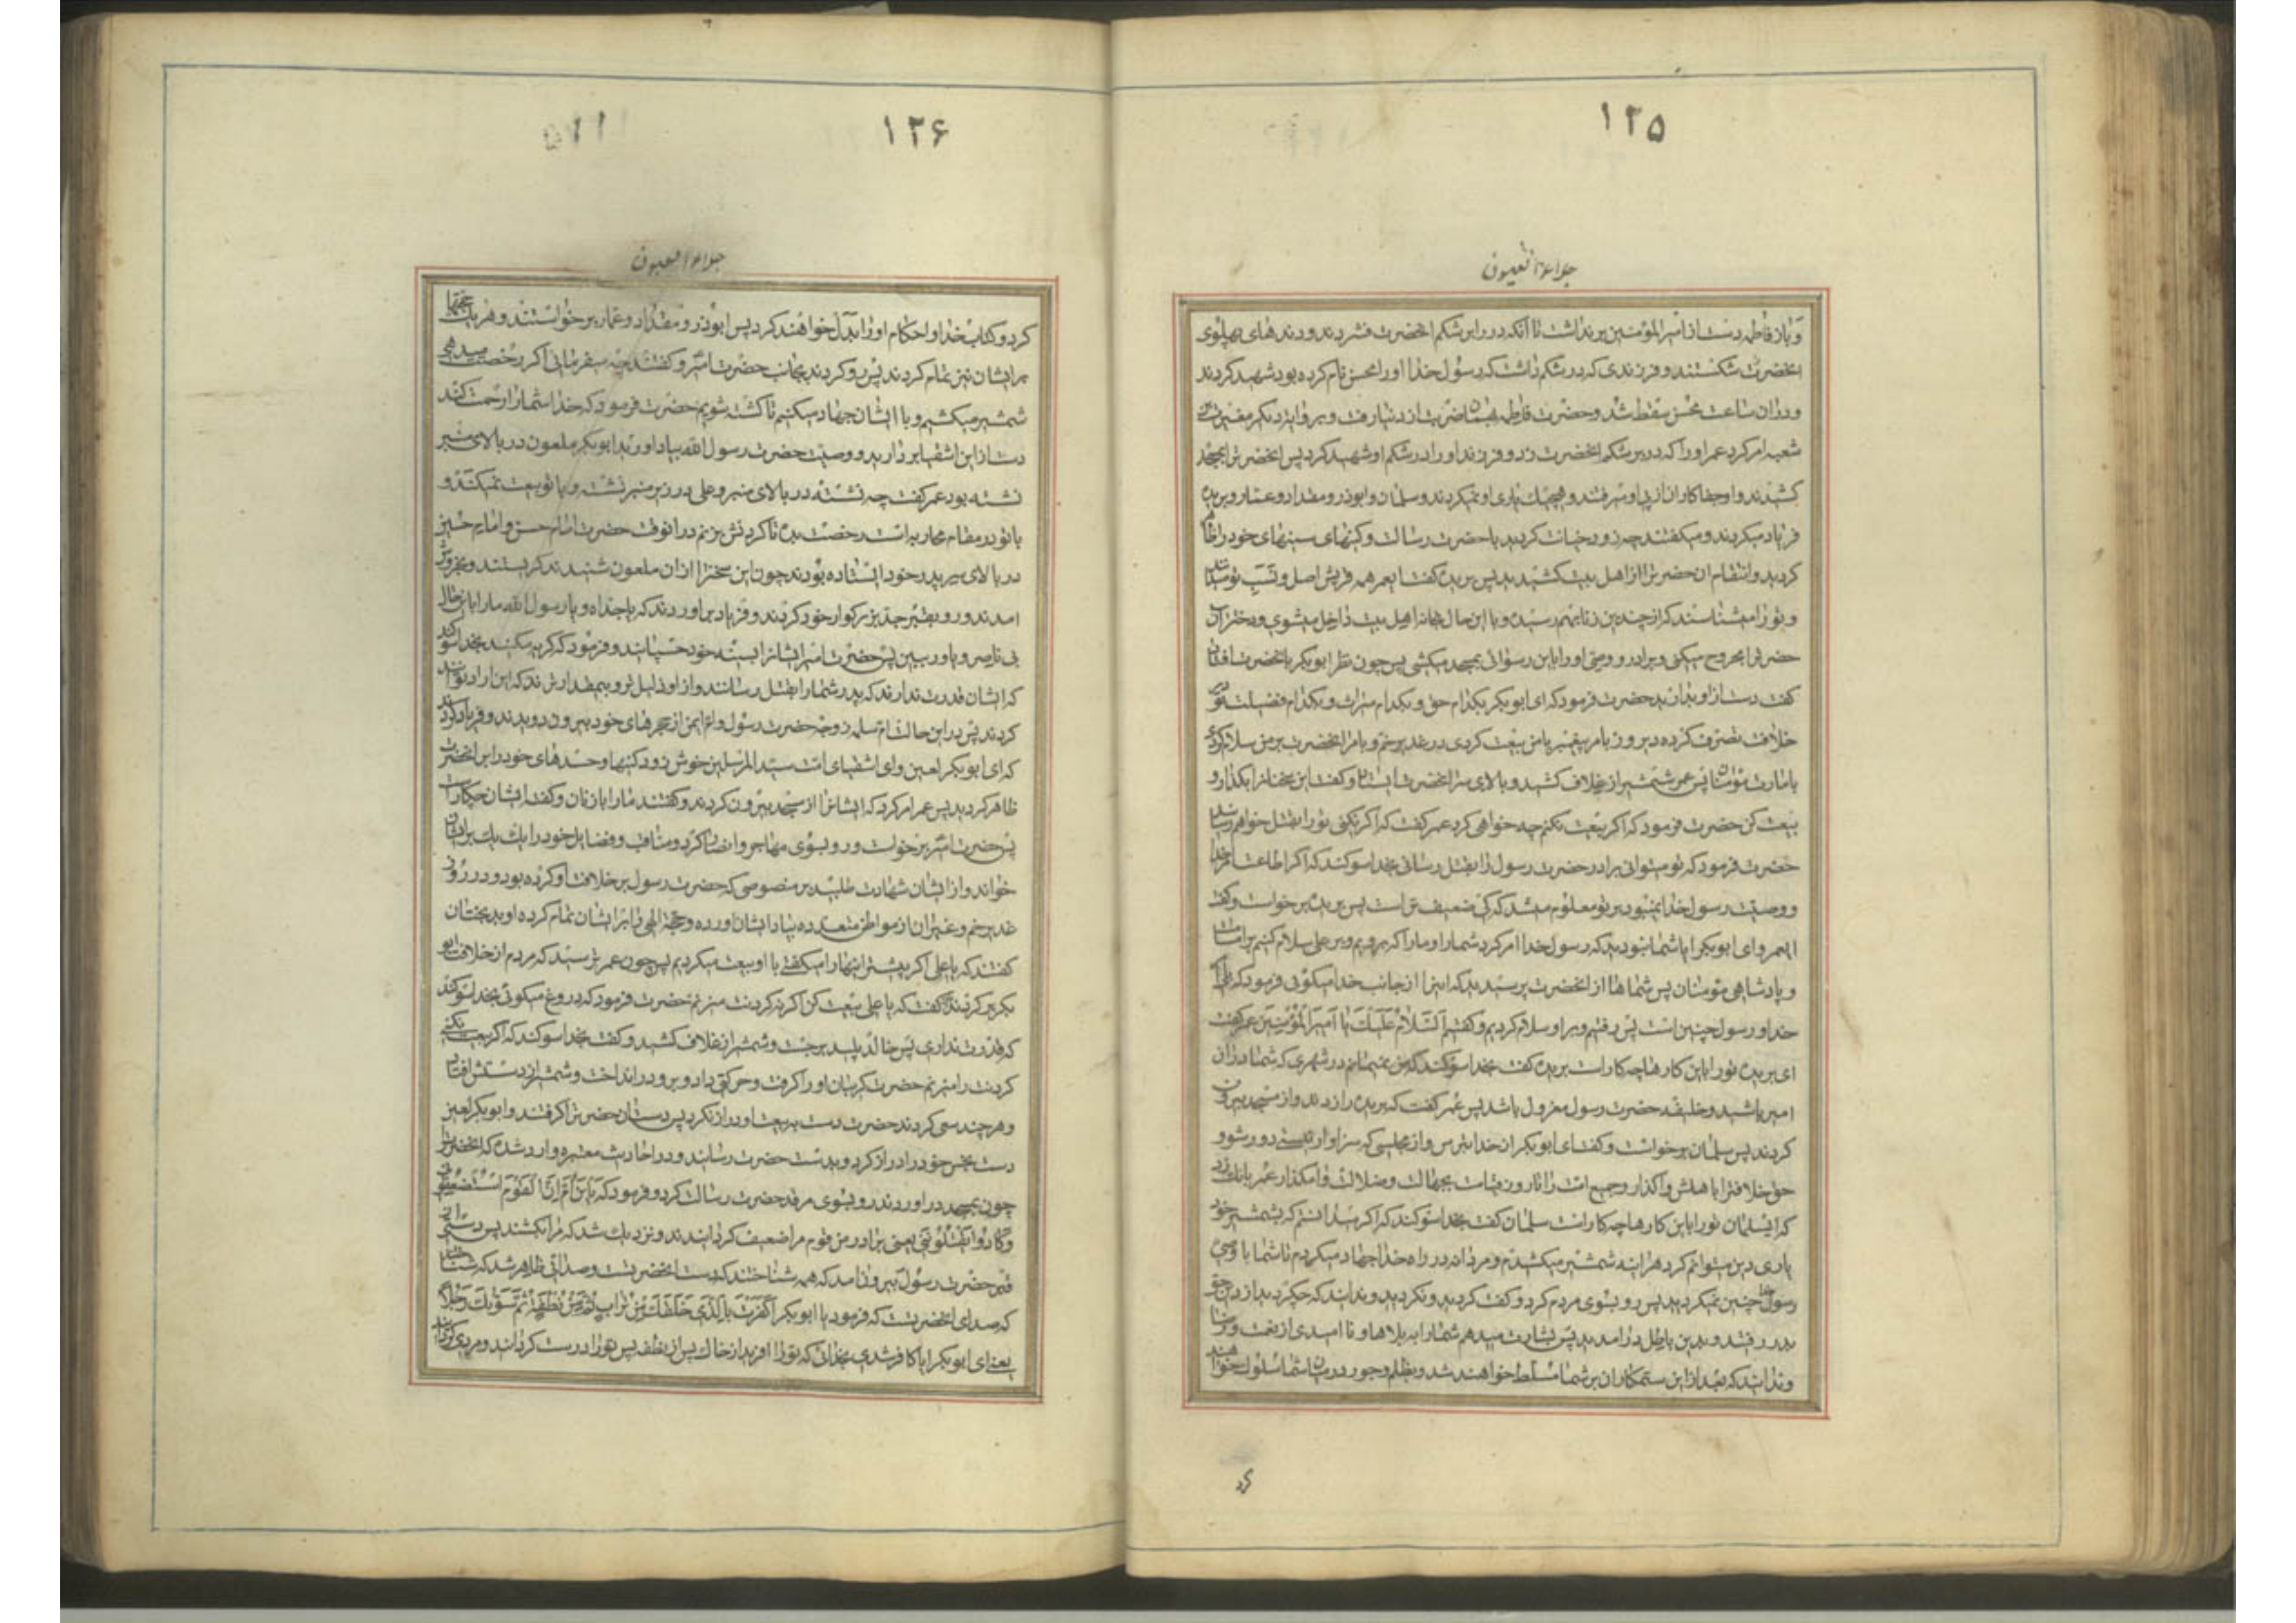 ۱۲۵
جلاء العیون
و باز فاطمه دست از امیر المؤمنین برنداشت تا آنکه در را بر شکم انحضرت فشردند و دندهای پهلوی
انحضرت شکستند و فرزندی که در شکم داشت که رسول خدا او را محسن نام کرده بود شهید کردند
و در ان ساعت محسن سقط شد و حضرت فاطمه بهمان ضربت از دنیا رفت و بروایت دیگر مغیرة بن
شعبه امر کرد عمر او را که در بر شکم انحضرت زد و فرزند او را در شکم او شهید کرد پس انحضرت را بمسجد
کشیدند و ان جفاکاران از پی او میرفتند و هیچیک یاری او نمیکردند و سلمان و ابوذر و مقداد و عمار و بریده
فریاد میکردند و میگفتند چه زود خیانت کردید با حضرت رسالت و کینهای سینهای خود را ظاهر
کردید و انتقام ان حضرت را از اهل بیت کشیدید پس بریده گفت ایعمر همه قریش اصل و نسب تو میدانند
و تو را میشناسند که از چندین زنا بهم رسیدهٔ و با این حال بخانه اهل بیت داخل میشوی و دختر ان
حضرت را مجروح میکنی و برادر و وصی او را باین رسوائی بمسجد میکشی پس چون نظر ابوبکر بانحضرت افتاد
گفت دست از او بدارید حضرت فرمود که ای ابوبکر بکدام حق و بکدام میراث و بکدام فضیلت تو در
خلافت تصرف کرده دیروز بامر پیغمبر با من بیعت کردی در غدیر خم و بامر انحضرت بر من سلام کردی
بامارت مؤمنان پس عمر شمشیر از غلاف کشید و بالای سر انحضرت ایستاد و گفت این سخنانرا بگذار و
بیعت کن حضرت فرمود که اگر بیعت نکنم چه خواهی کرد عمر گفت که اگر نکنی تو را بقتل خواهم رسانید
حضرت فرمود که تو میتوانی برادر حضرت رسول را بقتل رسانی بخدا سوگند که اگر اطاعت امر خدا
و وصیت رسول خدا نمیبود بر تو معلوم میشد که کی ضعیف تر است پس بریده برخواست و گفت
ایعمر و ای ابوبکر ایا شما نبودید که رسول خدا امر کرد شما را و ما را که برویم و بر علی سلام کنیم بر امامت
و پادشاهی مؤمنان پس شماها از انحضرت پرسیدید که اینرا از جانب خدا میگوئی فرمود که بلی از
خدا و رسول چنین است پس رفتیم و بر او سلام کردیم و گفتیم السّلام علیک یا امیر المؤمنین عمر گفت
ای بریده تو را باین کارها چه کار است بریده گفت بخدا سوگند که من نمیمانم در شهری که شما در ان
امیر باشید و خلیفه حضرت رسول معزول باشد پس عمر گفت که بریده را زدند و از مسجد بیرون
کردند پس سلمان برخواست و گفت ای ابوبکر از خدا بترس و از مجلسی که سزاوار نیستی دور شو و
حق خلافترا باهلش واگذار و جمیع امت را تا روز قیامت بجهالت و ضلالت وامگذار عمر بانک زد
که ایسلمان تو را باین کارها چه کار است سلمان گفت بخدا سوگند که اگر میدانستم که بشمشیر خود
یاری دین میتوانم کرد هراینه شمشیر میکشیدم و مردانه در راه خدا جهاد میکردم تا شما با وصی
رسول خدا چنین نمیکردید پس رو بسوی مردم کرد و گفت کردید و نکردید و ندانید که چکردید از دین حق
بدر رفتید و بدین باطل درامدید پس بشارت میدهم شما را به بلاها و نا امیدی از نعمت و رخا
و بدانید که بعد از این ستمکاران بر شما مسلط خواهند شد و بظلم و جور در میان شما سلوک خواهند
کرد
۱۲۶
جلاء العیون
کرد و کتاب خدا و احکام او را بدل خواهند کرد پس ابوذر و مقداد و عمار برخواستند و هر یک حجتها
بر ایشان نیز تمام کردند پس رو کردند بجانب حضرت امیر و گفتند چه میفرمائی اگر رخصت میدهی
شمشیر میکشیم و با ایشان جهاد میکنیم تا کشته شویم حضرت فرمود که خدا شما را رحمت کند
دست از این اشقیا بردارید و وصیت حضرت رسول الله بیاد اورید ابوبکر ملعون در بالای منبر
نشسته بود عمر گفت چه نشستهٔ در بالای منبر و علی در زیر منبر نشسته و با تو بیعت نمیکند و
با تو در مقام محاربه است رخصت بده تا گردنش بزنم در انوقت حضرت امام حسن و امام حسین
در بالای سر پدر خود ایستاده بودند چون این سخنرا از ان ملعون شنیدند گریستند و بخروش
امدند و رو بقبر جد بزرگوار خود کردند و فریاد براوردند که یا جداه و یا رسول الله ما را باین حال
بی ناصر و یاور ببین پس حضرت امیر ایشانرا بسینه خود چسپانید و فرمود که گریه مکنید بخدا سوگند
که ایشان قدرت ندارند که پدر شما را بقتل رسانند و از او ذلیل تر و بیمقدارترند که این اراده توانند
کردند پس در این حالت ام سلمه زوجه حضرت رسول و ام ایمن از حجرهای خود بیرون دویدند و فریاد کردند
که ای ابوبکر لعین و ای اشقیای امت سید المرسلین خوش زود کینها و حسدهای خود را بر انحضرت
ظاهر کردید پس عمر امر کرد که ایشانرا از مسجد بیرون کردند و گفتند ما را با زنان و گفته ایشان چکار است
پس حضرت امیر برخواست و رو بسوی مهاجر و انصار کرد و مناقب و فضایل خود را یک یک بر ایشان
خواند و از ایشان شهادت طلبید بر نصوصی که حضرت رسول بر خلافت او کرده بود و در روز
غدیر خم و غیر ان از مواطن متعدده بیاد ایشان اورده و حجة الهی را بر ایشان تمام کرده او بدبختان
گفتند که یا علی اگر پیشتر اینها را میگفتی با او بیعت میکردیم پس چون عمر ترسید که مردم از خلافت ابو
بکر برگردند گفت که یا علی بیعت کن اگر نه گردنت میزنم حضرت فرمود که دروغ میگوئی بخدا سوگند
که قدرت نداری پس خالد پلید برجست و شمشیر از غلاف کشید و گفت بخدا سوگند که اگر بیعت نکنی
گردنت را میزنم حضرت گریبان او را گرفت و حرکتی داد و بر دور انداخت و شمشیر از دستش افتاد
و هر چند سعی کردند حضرت دست به بیعت او دراز نکرد پس دستان حضرت را گرفتند و ابوبکر لعین
دست نجس خود را دراز کرد و بدست حضرت رسانید و در احادیث معتبره وارد شده که انحضرت را
چون بمسجد دراوردند رو بسوی مرقد حضرت رسالت کرد و فرمود که یابن امّ انّ القوم استضعفونی
و کادوا یقتلوننی یعنی برادر من قوم مرا ضعیف گردانیدند و نزدیک شد که مرا بکشند پس دستی از
قبر حضرت رسول بیرون امد که همه شناختند که دست انحضرتست و صدائی ظاهر شد که شناختند
که صدای انحضرتست که فرمود یا ابوبکر اکفرت بالّذی خلقک من تراب ثمّ من نطفة ثمّ سوّیک رجلا
یعنی ای ابوبکر ایا کافر شدی بخدائی که تو را افرید از خاک پس از نطفه پس تو را درست گردانید و مردی گردانید